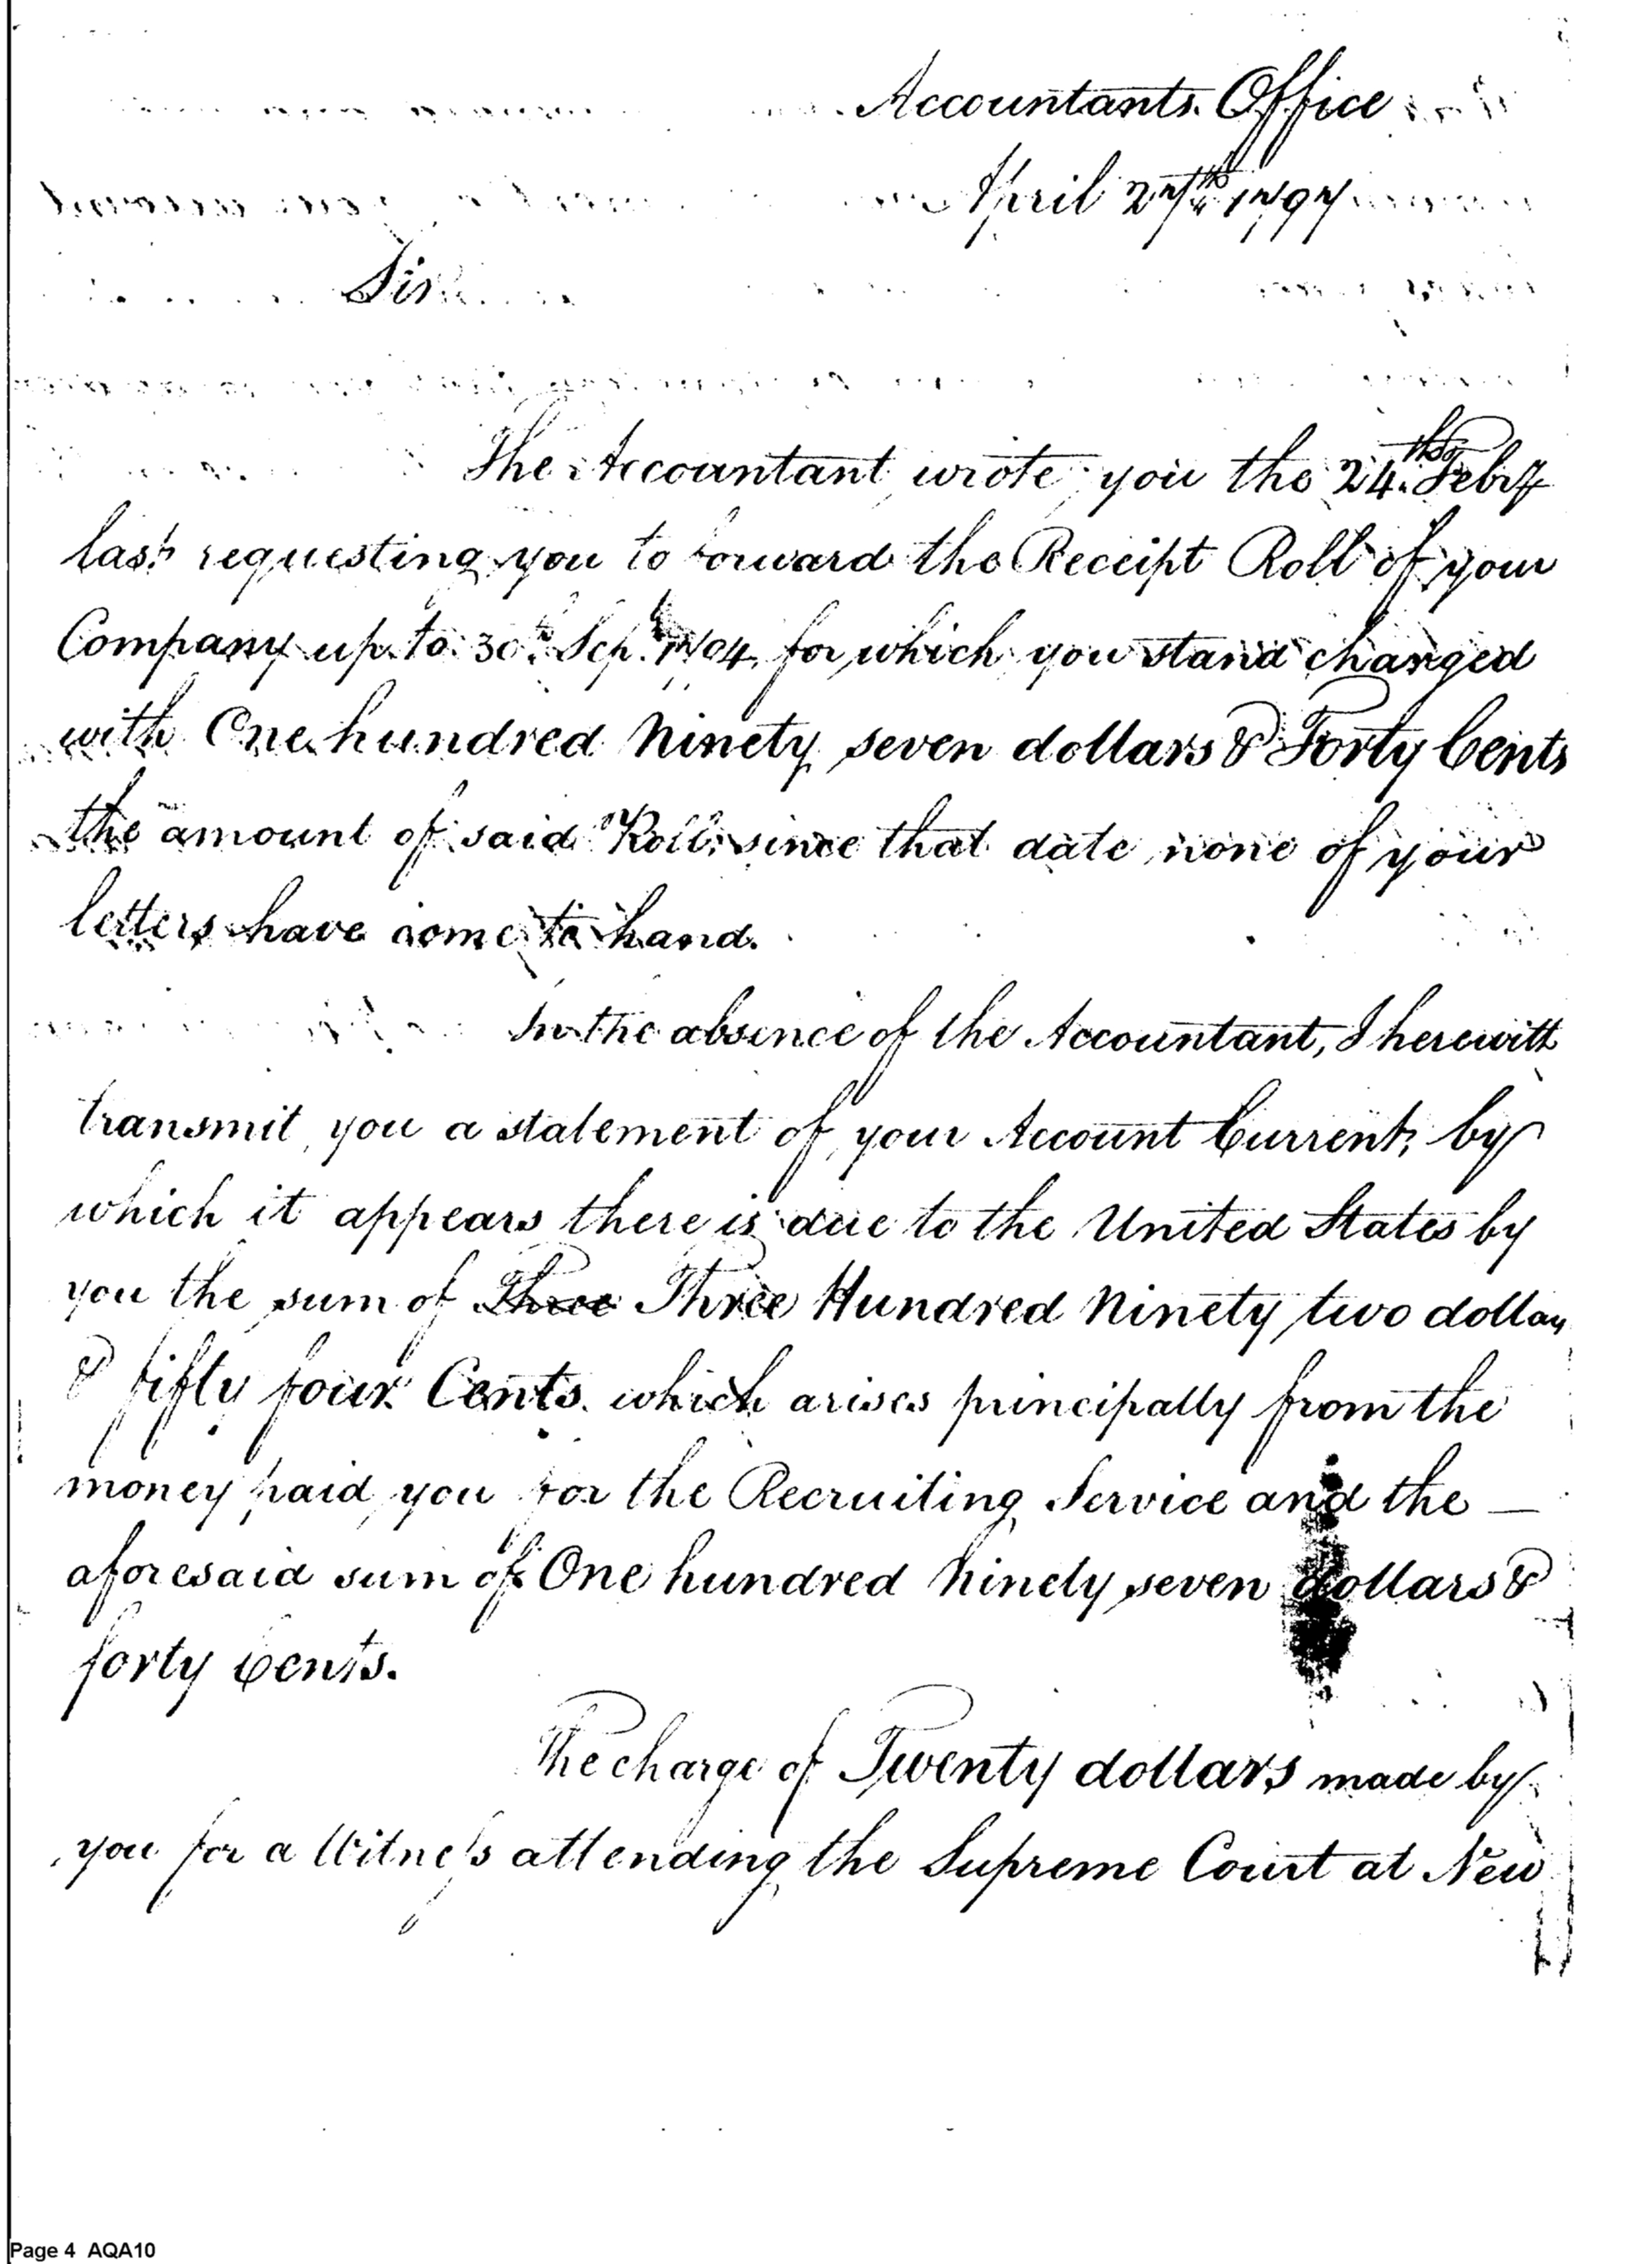 Accountants Office
April 27th 1797
Sir
The Accountant wrote you the 24th Febry
last requesting you to forward the Receipt Roll of your
Company up to 30th Sep. 1794 for which you stand charged
with One hundred Ninety seven dollars & Forty Cents
the amount of said Roll, since that date none of your
letters have come to hand.
In the absence of the Accountant, I herewith
transmit you a statement of your Account Current, by
which it appears there is due to the United States by
you the sum of Three Three Hundred Ninety two dollars
& fifty four Cents. which arises principally from the
money paid you for the Recruiting Service and the —
aforesaid sum of One hundred Ninety seven dollars &
forty Cents.
The charge of Twenty dollars made by
you for a Witness attending the Supreme Court at New
Page 4 AQA10